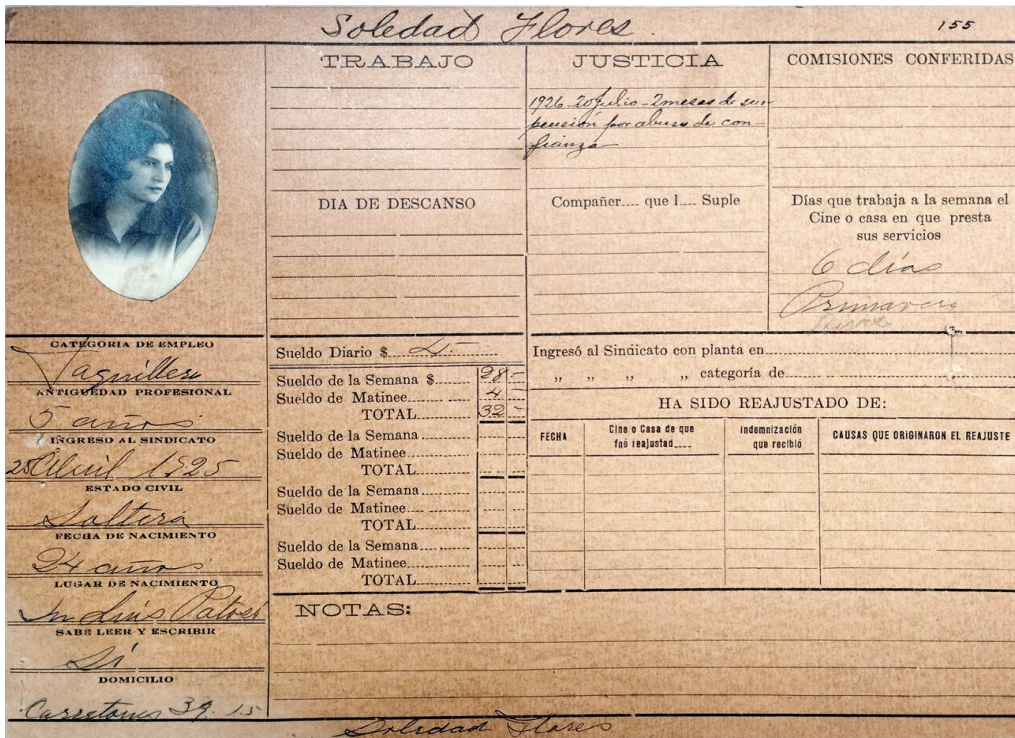 Soledad Flores. 155
TRABAJO
JUSTICIA
COMISIONES CONFERIDAS
1926-20 Julio-2 meses de sus
pension por abuso de con-
fianza
DIA DE DESCANSO
Compañer.... que l.... Suple
Días que trabaja a la semana el
Cine o casa en que presta
sus servicios
6 días
Primavera
CATEGORIA DE EMPLEO
Taquillera
ANTIGUEDAD PROFESIONAL
5 años
INGRESO AL SINDICATO
25 Abril 1925
ESTADO CIVIL
Soltera
FECHA DE NACIMIENTO
24 años
LUGAR DE NACIMIENTO
Sn Luis Potosi
SABE LEER Y ESCRIBIR
Si
DOMICILIO
Carretones 39. 15
Sueldo Diario $ 4-
Sueldo de la Semana $ 28-
Sueldo de Matinee 4-
TOTAL 32-
Sueldo de la Semana
Sueldo de Matinee
TOTAL
Sueldo de la Semana
Sueldo de Matinee
TOTAL
Sueldo de la Semana
Sueldo de Matinee
TOTAL
Ingresó al Sindicato con planta en
„ „ „ „ categoría de
HA SIDO REAJUSTADO DE:
FECHA
Cine o Casa de que
fué reajustad....
Indemnización
que recibió
CAUSAS QUE ORIGINARON EL REAJUSTE
NOTAS:
Soledad Flores